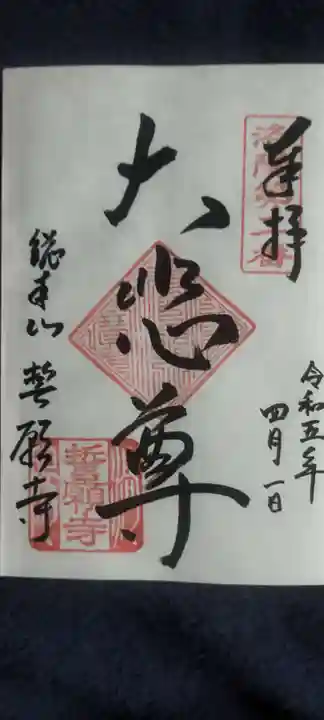 奉拝
洛陽第二番
令和五年
四月一日
大悲尊
総本山 誓願寺
誓願寺